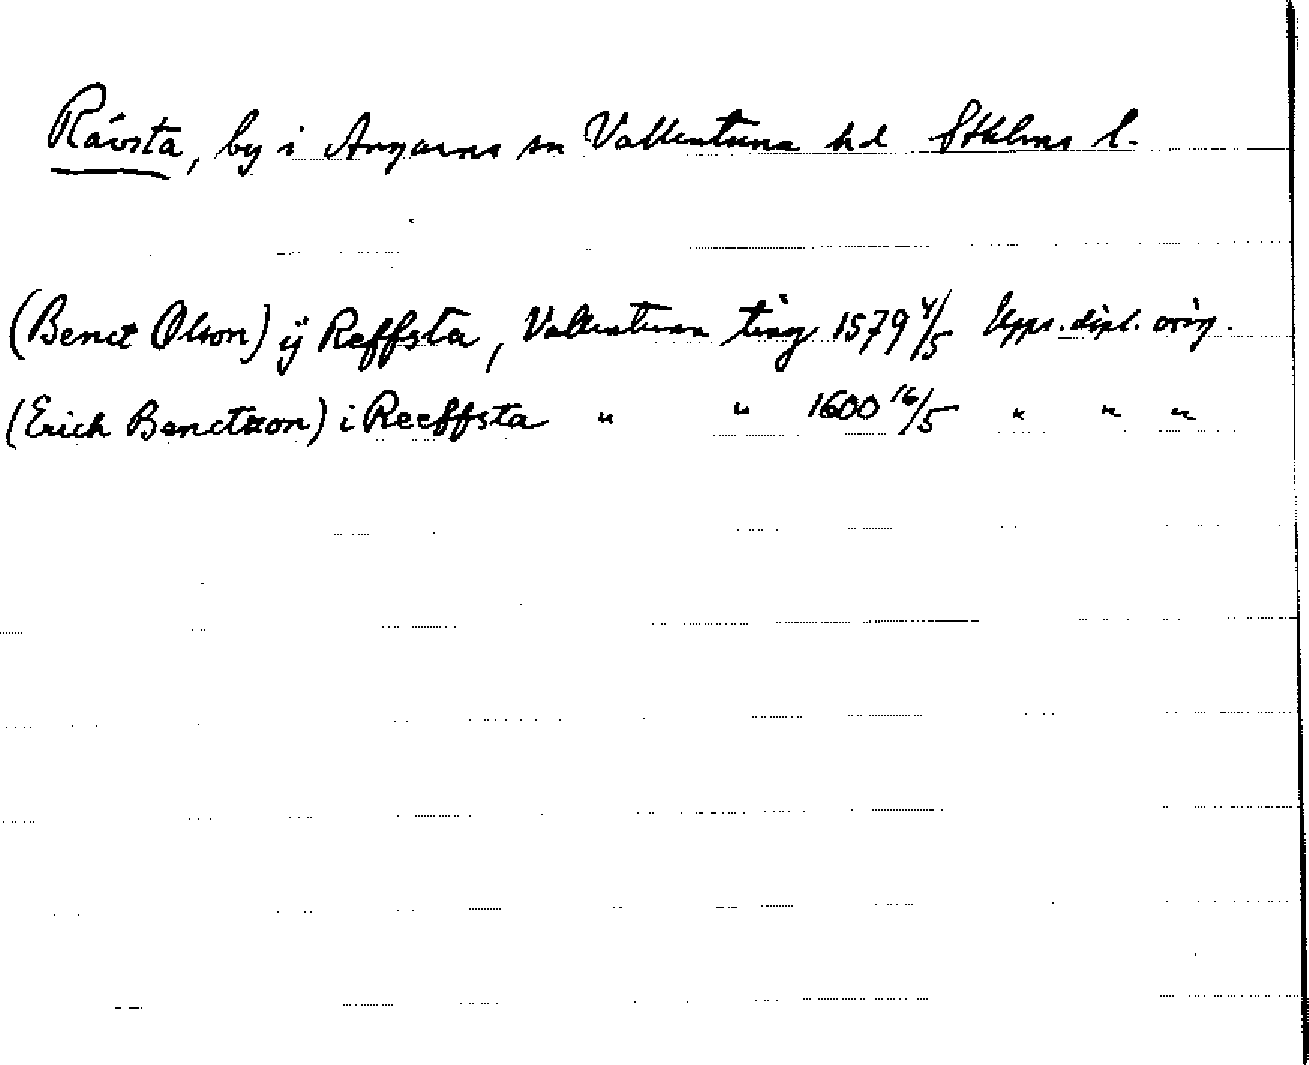 Rävsta, by i Angarns sn Vallentuna hd Sthlms l.
(Benct Olson) ij Reffsta, Vallentuna ting 1579 4/5 Upps. dipl. orig.
(Erich Benctsson) i Reeffsta " " 1600 16/5 " " "